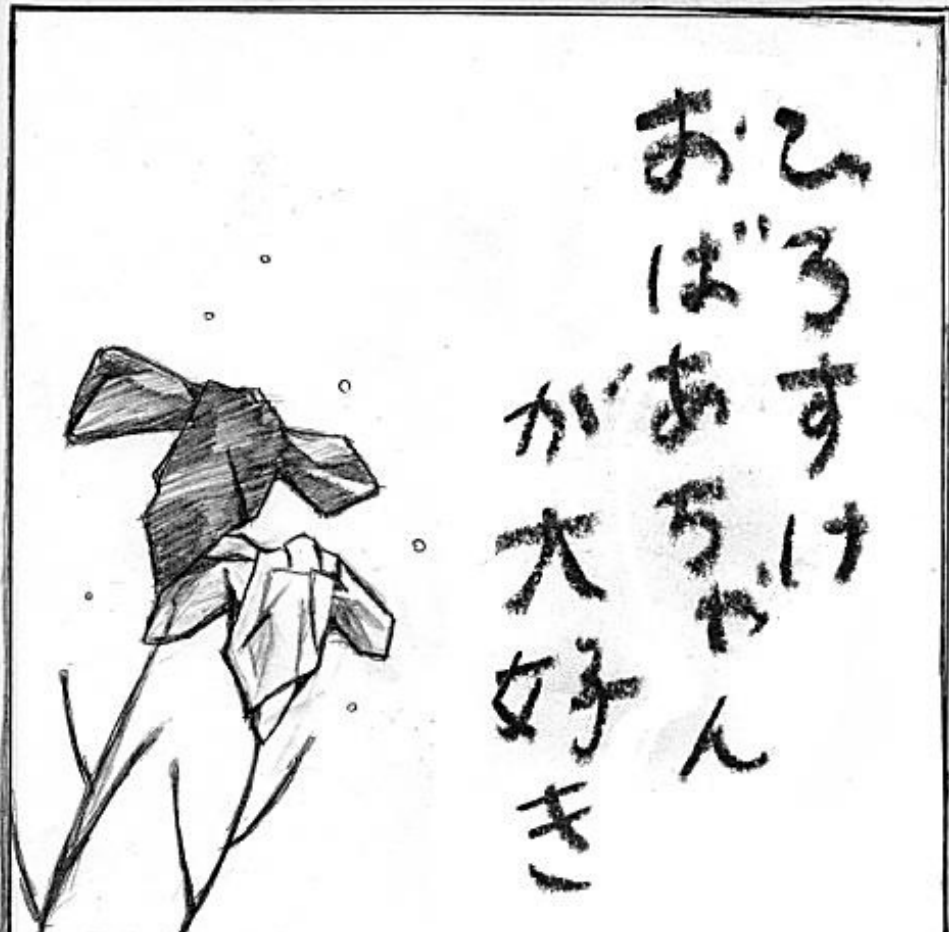 ひろすけ
おばあちゃん
が大好き